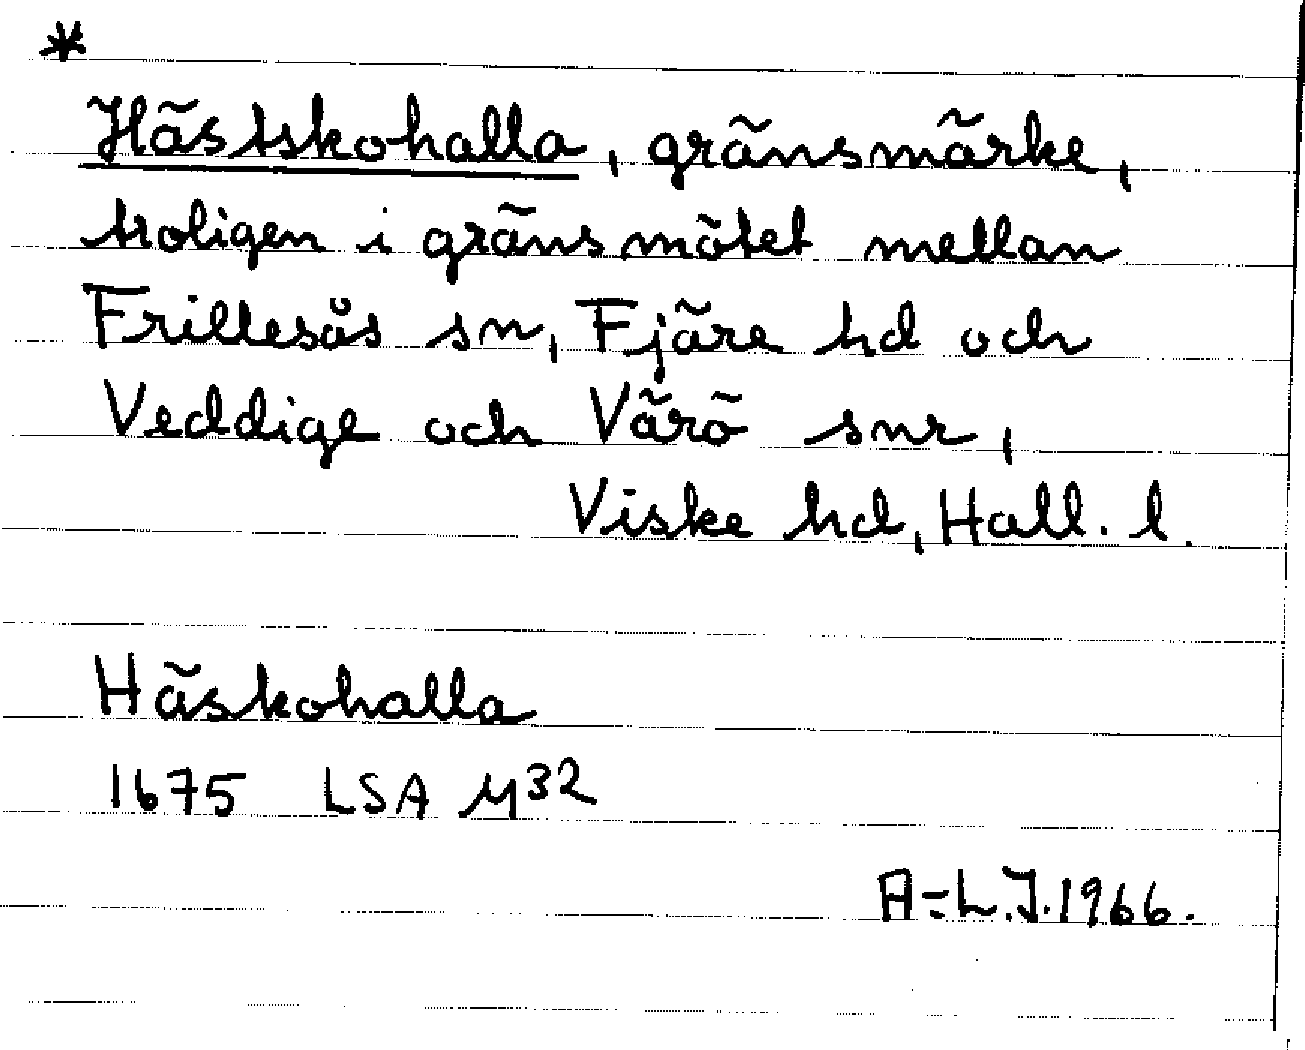 *
Hästskohalla, gränsmärke,
troligen i gränsmötet mellan
Frillesås sn, Fjäre hd och
Veddige och Värö snr,
Viske hd, Hall. l.
Häskohalla
1675 LSA M³²
A-L.J. 1966.